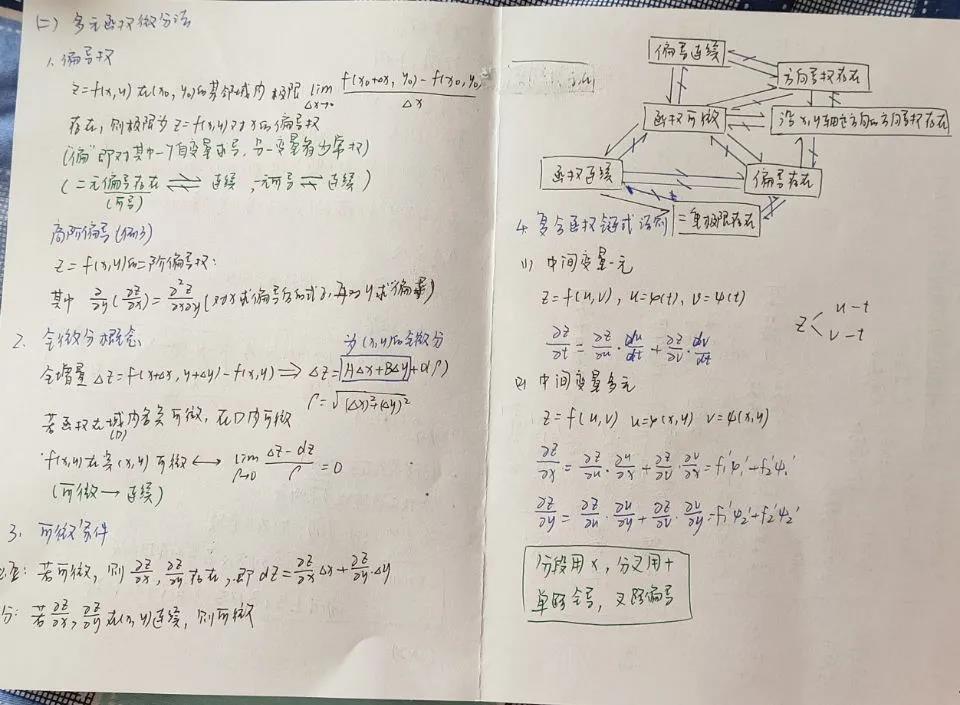 (二) 多元函数微分法
1. 偏导数
z=f(x,y) 在(x₀,y₀)的某邻域内 极限 lim_{Δx→0} \frac{f(x₀+Δx, y₀)-f(x₀,y₀)}{Δx}
存在, 则极限为 z=f(x,y) 对 x 的偏导数
("偏"即对其中一个自变量求导, 另一变量看为常数)
(二元偏导存在 ⇌ 连续, 一元可导 ⇌ 连续)
(可导)
高阶偏导(偏导)
z=f(x,y)的二阶偏导数:
其中 \frac{∂}{∂y}(\frac{∂z}{∂x}) = \frac{∂²z}{∂x∂y} (对x求偏导后的式子, 再对y求偏导)
2. 全微分概念
为(x,y)的全微分
全增量 Δz=f(x+Δx, y+Δy)-f(x,y) ⟹ Δz=AΔx+BΔy+o(ρ)
ρ=√((Δx)²+(Δy)²)
若函数在域内各点可微, 在D内可微
(D)
f(x,y)在点(x,y)可微 ⟷ lim_{ρ→0} \frac{Δz-dz}{ρ} = 0
(可微 → 连续)
3. 可微条件
必要: 若可微, 则 \frac{∂z}{∂x}, \frac{∂z}{∂y} 存在, 即 dz=\frac{∂z}{∂x}Δx+\frac{∂z}{∂y}·Δy
分: 若 \frac{∂z}{∂x}, \frac{∂z}{∂y} 在(x,y)连续, 则可微
偏导连续
方向导数存在
函数可微
沿x,y轴正方向的方向导数存在
函数连续
偏导存在
二重极限存在
4. 复合函数链式法则
(1) 中间变量一元
z=f(u,v), u=φ(t), v=ψ(t)
z< u-t
v-t
\frac{∂z}{∂t} = \frac{∂z}{∂u}·\frac{du}{dt} + \frac{∂z}{∂v}·\frac{dv}{dt}
(2) 中间变量多元
z=f(u,v) u=φ(x,y) v=ψ(x,y)
\frac{∂z}{∂x} = \frac{∂z}{∂u}·\frac{∂u}{∂x} + \frac{∂z}{∂v}·\frac{∂v}{∂x} = f₁'φ₁'+f₂'ψ₁'
\frac{∂z}{∂y} = \frac{∂z}{∂u}·\frac{∂u}{∂y} + \frac{∂z}{∂v}·\frac{∂v}{∂y} = f₁'φ₂'+f₂'ψ₂'
分段用×, 分叉用+
单路全导, 叉路偏导